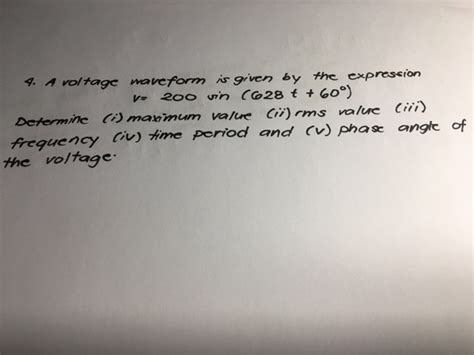 4. A voltage waveform is given by the expression
v= 200 sin (628 t + 60°)
Determine (i) maximum value (ii) rms value (iii)
frequency (iv) time period and (v) phase angle of
the voltage.